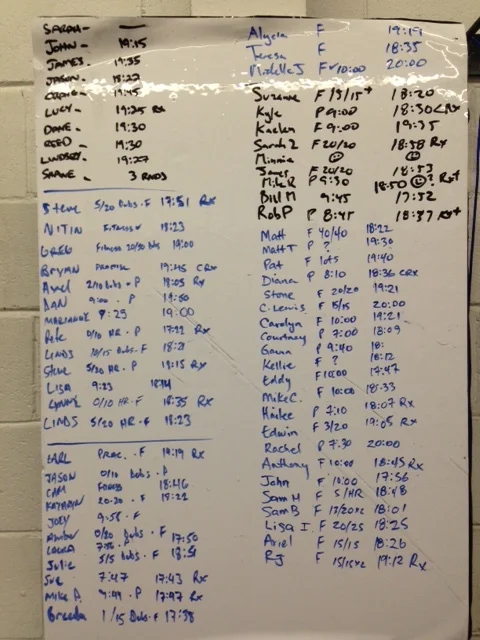 SARAH -
JOHN - 19:15
JAMES - 19:35
JASON - 18:22
CRAIG - 19:45
LUCY - 19:25 Rx
DANE - 19:30
REED - 19:30
LINDSEY - 19:27
SHANE - 3 RNDS
Steve 5/20 Dubs - F 17:51 Rx
NITIN Fitness 18:23
GREG Fitness 20/30 Dubs 19:00
BRYAN 19:45 CRx
Axel 2/10 Dubs - P 18:05 Rx
DAN 9:00 - P 19:50
MARIANNE 8:25 19:00
Pete 0/10 HR - P 17:22 Rx
LINDS 10/15 Dubs - F 18:21
Steve 5/20 HR - P 19:15 Rx
LISA 9:23 18:14
LYNNE 0/10 HR - F 18:35 Rx
LINDS 5/20 HR - F 18:23
EARL PRAC. - F 19:19 Rx
JASON 0/10 Dubs - P
CAM 18:46
KATHRYN 20:30 - F 18:22
JOEY 9:58 - F
Amber 0/20 Dubs - F 17:50
7:56 - F
Julie 5/5 Dubs - F 18:51
Sue 7:47 17:43 Rx
Mike P. 9:49 - P 17:47 Rx
Brenda 1/15 Dubs - F 17:38
Alycia F 19:19
Teresa F 18:35
Michelle J F 10:00 20:00
Suzanne F 15/15+ 18:20
Kyle P 9:00 18:30 CRx
Kaelen F 9:00 19:35
Sarah Z F 20/20 18:58 Rx
Minnie ☺ ☺
James F 20/20 18:53
Mike R P 9:30 18:50 ☺? Rx+
Bill M 9:45 17:52
Rob P P 8:45 18:37 Rx+
Matt F 40/40 18:22
Matt T P ? 19:30
Pat F lots 19:40
Diana P 8:10 18:36 CRx
Stone F 20/20 19:21
C. Lewis F 5/15 20:00
Carolyn F 10:00 19:21
Courtney P 7:00 18:09
Gavin P 9:40 18:
Kellie F ? 18:12
Eddy F 10:00 17:47
Mike C. F 10:00 18:33
Hailee P 7:10 18:07 Rx
Edwin F 3/20 19:05 Rx
Rachel P 7:30 20:00
Anthony F 10:00 18:45 Rx
John F 10:00 17:56
Sam H F 5/HR 18:48
Sam B F 18:01
Lisa I. F 20/25 18:25
Ariel F 15/15 18:26
RJ F 19:12 Rx